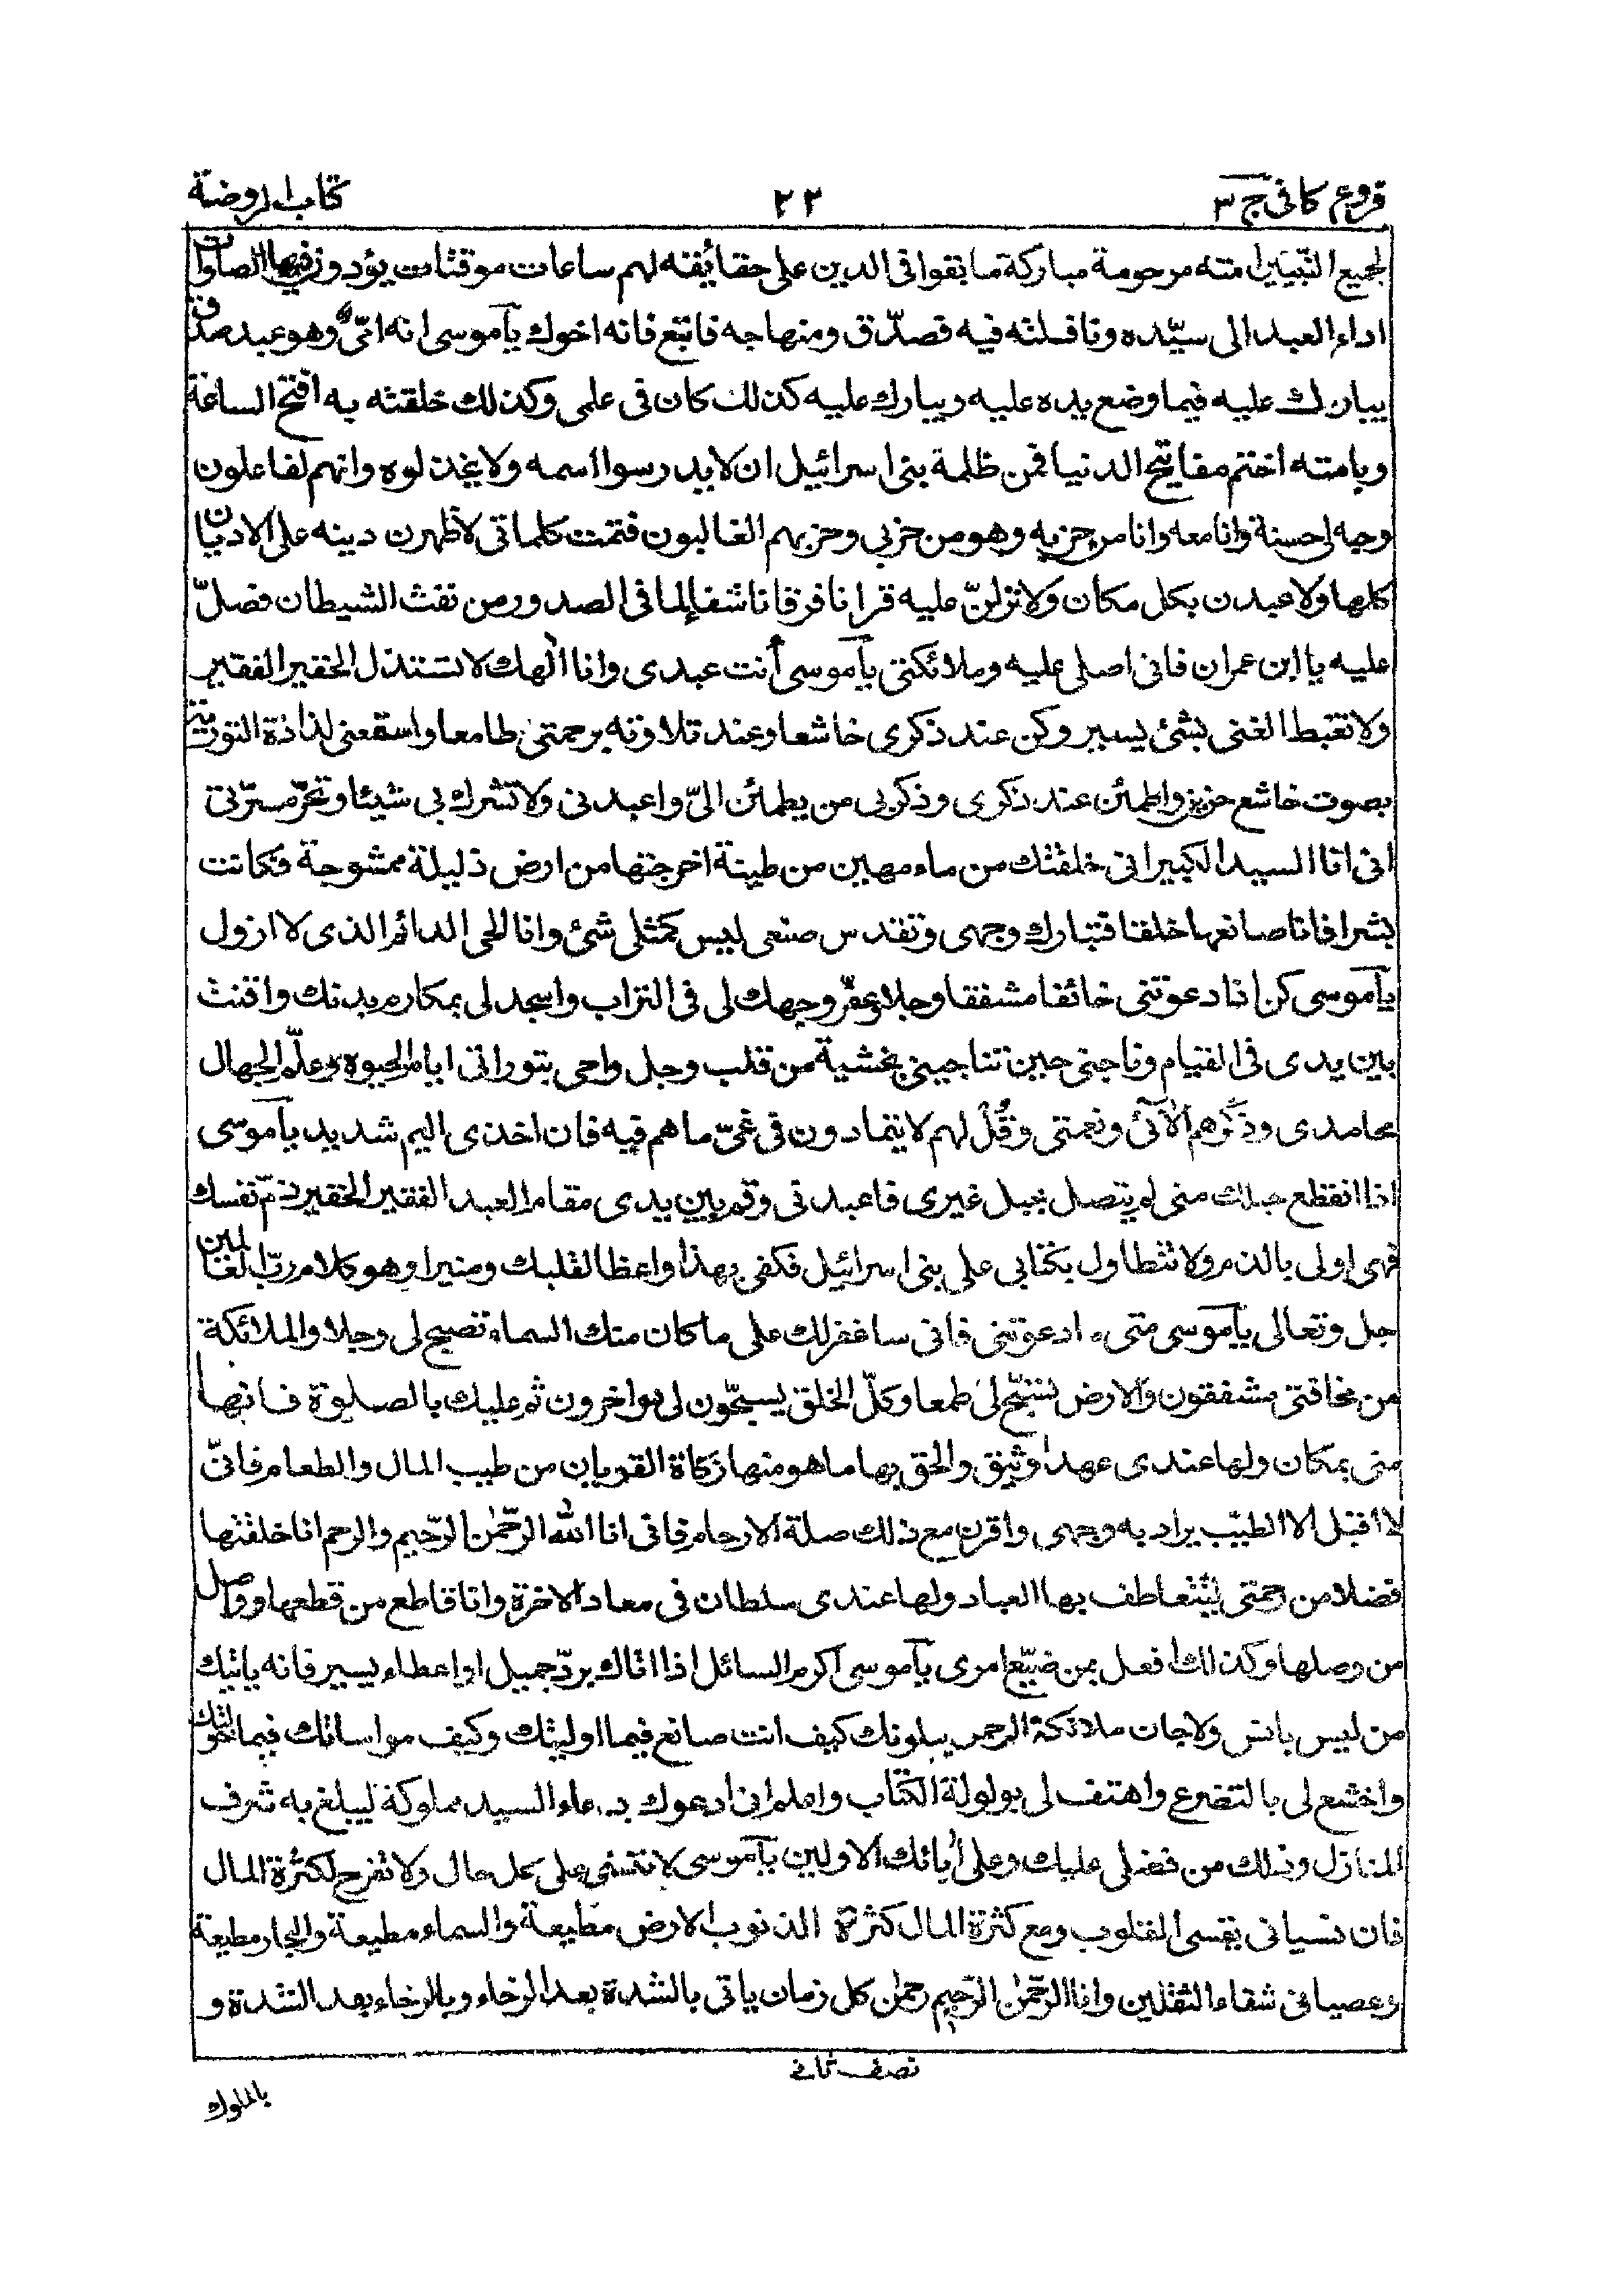 فروع كافى ج ٣
٢٣
كتاب الروضة
لجميع النبيين امته مرحومة مباركة ما بقوا فى الدين على حقائقه لهم ساعات موقتات يؤدون فيها الصلوات
اداء العبد الى سيّده ونافلته فيه فصدّق ومنهاجه فاتبع فانه اخوك يا موسى انه امّى وهو عبد صدق
يبارك عليه فيما وضع يده عليه ويبارك عليه كذلك كان فى علمى وكذلك خلقته به افتح الساعة
وبامته اختم مفاتيح الدنيا فمن ظلمة بنى اسرائيل ان لا يدرسوا اسمه ولا يخذلوه وانهم لفاعلون
وحبه لى حسنة وانا معه وانا من حزبه وهو من حزبي وحزبهم الغالبون فتمت كلماتى لاظهرن دينه على الاديان
كلها ولاعبدن بكل مكان ولانزلنّ عليه قرانا فرقانا شفاء لما فى الصدور من نفث الشيطان فصلّ
عليه يا ابن عمران فانى اصلى عليه وملائكتى يا موسى أنت عبدى وانا الهك لا تستذل الحقير الفقير
ولا تغبط الغنى بشئ يسير وكن عند ذكرى خاشعا وعند تلاوته برحمتى طامعا واسمعنى لذاذة التورية
بصوت خاشع حزين واطمئن عند ذكرى وذكر بى من يطمئن الىّ واعبدنى ولا تشرك بى شيئا وتحرّ مسرّتى
انى انا السيد الكبير انى خلقتك من ماء مهين من طينة اخرجتها من ارض ذليلة ممشوجة فكانت
بشرا فانا صانعها خلقا فتبارك وجهى وتقدس صنعى ليس كمثلى شئ وانا الحى الدائم الذى لا ازول
يا موسى كن اذا دعوتنى خائفا مشفقا وجلا وعفّر وجهك لى فى التراب واسجد لى بمكارم بدنك واقنت
بين يدى فى القيام وناجنى حين تناجينى بخشية من قلب وجل واحى بتوراتى ايام الحيوة وعلّم الجهال
محامدى وذكّرهم آلائى ونعمتى وقُل لهم لا يتمادون فى غىّ ما هم فيه فان اخذى اليم شديد يا موسى
اذا انقطع حبلك منى لم يتصل بحبل غيرى فاعبدنى وقم بين يدى مقام العبد الفقير الحقير ذمّ نفسك
فهى اولى بالذم ولا تتطاول بكتابى على بنى اسرائيل فكفى بهذا واعظا لقلبك ومنيرا وهو كلام ربّ العالمين
جل وتعالى يا موسى متى ادعوتنى فانى ساغفر لك على ما كان منك السماء تصبح لى وجلا والملائكة
من مخافتى مشفقون والارض تسبّح لى طمعا وكلّ الخلق يسبحّون لى داخرون ثم عليك بالصلوة فانها
منى بمكان ولها عندى عهدا وثيق والحق بها ما هو منها زكاة القربان من طيب المال والطعام فانىّ
لا اقبل الا الطيّب يراد به وجهى واقرن مع ذلك صلة الارحام فانى انا الله الرّحمٰن الرّحيم والرحم انا خلقتها
فضلا من رحمتى ليتعاطف بها العباد ولها عندى سلطان فى معاد الاخرة وانا قاطع من قطعها وواصل
من وصلها وكذلك افعل بمن ضيّع امرى يا موسى اكرم السائل اذا اتاك بردّ جميل او اعطاء يسير فانه ياتيك
من ليس بانس ولا جان ملائكة الرحمن يبلونك كيف انت صانع فيما اوليتك وكيف مواساتك فيما خولتك
واخشع لى بالتضرع واهتف لى بولولة الكتاب واعلم انى ادعوك دعاء السيد مملوكه ليبلغ به شرف
المنازل وذلك من فضلى عليك وعلى آبائك الاولين يا موسى لا تنسنى على كل حال ولا تفرح لكثرة المال
فان نسيانى يقسى القلوب ومع كثرة المال كثرة الذنوب الارض مطيعة والسماء مطيعة والبحار مطيعة
وعصيانى شقاء الثقلين وانا الرّحمٰن الرّحيم رحمٰن كل زمان ياتى بالشدة بعد الرخاء وبالرخاء بعد الشدة و
نصف ثانى
بالملوك